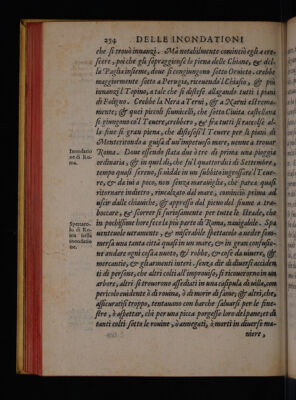 254 DELLE INONDATIONI
che si trouò innanzi. Mà notabilmente cominciò egli a cre-
scere, poi che gli sopraggiunse la piena delle Chiane, & del-
la Paglia insieme, doue si congiungono sotto Oruieto. crebbe
maggiormente sotto a Perugia, riceuendo l Chiascio, & più
innanzi l Topino, a tale che si distese allagando tutti i piani
di Foligno. Crebbe la Nera a Terni, & a Narni estrema-
mente; & quei piccoli fiumicelli, che sotto Ciuita castellana
si giungono co'l Teuere, crebbero, & fù tutti si raccolse al-
la fine sì gran piena, che distesosi'l Teuere per li piani di
Menteritondo a guisa d'un impetuoso mare, uenne a trouar
Inondatio
ne di Ro-
ma.
Roma. Doue essendo stata due ò tre dì prima una pioggia
ordinaria, & in quel dì, che fù'l quattordici di Settembre,
tempo quasi sereno, si uidde in un subbito ingrossare'l Teue-
re, & da indi a poco, non senza marauiglia, che parea quasi
ritornare indietro, rincalzato dal mare, cominciò prima ad
uscir dalle chiauiche, & appresso dal pieno del fiume a tra-
boccare, & scorrer sì furiosamente per tutte le strade, che
in pochissime hore fece la più parte di Roma, nauigabile. Spa
Spettaco-
lo di Ro-
ma nella
inondatio
ne.
uenteuole ueramente, & miserabile spettacolo a ueder som-
mersa una tanta città quasi in un mare, & in gran confusio-
ne andare ogni cosa a nuoto, & robbe, & case da uiuere, &
mercantie, & gli armenti interi. senza dir di diuersi acciden
ti di persone, che altri colti all'improuiso, si ricouerorno in un
arbore, altri si trouorono assediati in una casipula di uilla, con
pericolo euidente ò di rouina, ò di morir di fame; & altri, che,
assicuratisi troppo, tentauano con barche saluarsi per le fine-
stre, ò aspettar, chi per una picca porgesse loro del pane, et di
tanti colti sotto le rouine, ò annegati, ò morti in diuerse ma-
niere,